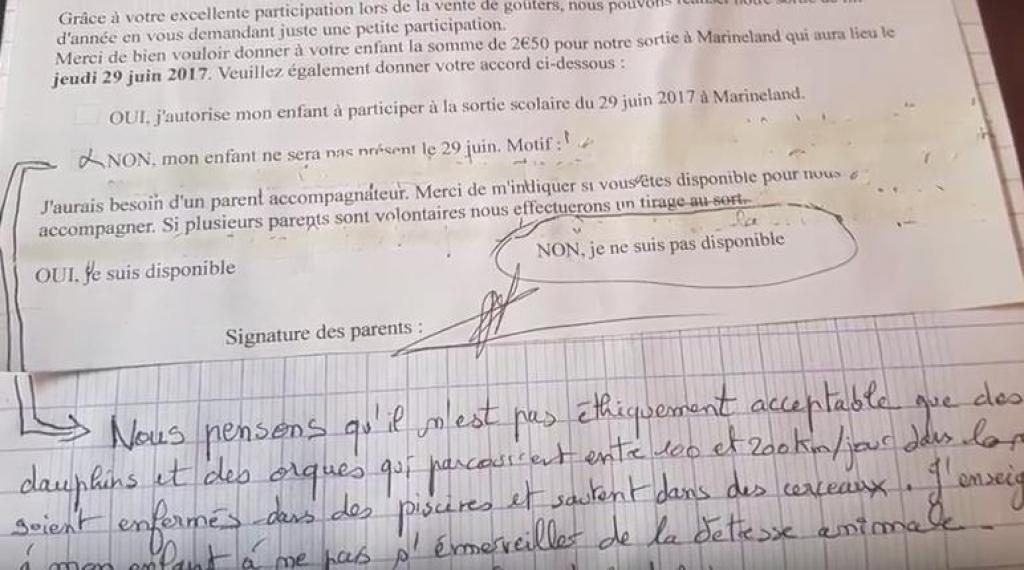 Grâce à votre excellente participation lors de la vente de goûters, nous pouvons
d'année en vous demandant juste une petite participation.
Merci de bien vouloir donner à votre enfant la somme de 2€50 pour notre sortie à Marineland qui aura lieu le
jeudi 29 juin 2017. Veuillez également donner votre accord ci-dessous :
OUI, j'autorise mon enfant à participer à la sortie scolaire du 29 juin 2017 à Marineland.
NON, mon enfant ne sera pas présent le 29 juin. Motif :
J'aurais besoin d'un parent accompagnateur. Merci de m'indiquer si vous êtes disponible pour nous
accompagner. Si plusieurs parents sont volontaires nous effectuerons un tirage au sort.
OUI, je suis disponible
NON, je ne suis pas disponible
Signature des parents :
Nous pensons qu'il n'est pas éthiquement acceptable que des
dauphins et des orques qui parcourent entre 100 et 200 km/jour dans la
soient enfermés dans des piscines et sautent dans des cerceaux. J'enseig
à mon enfant à ne pas s'émerveiller de la détresse animale